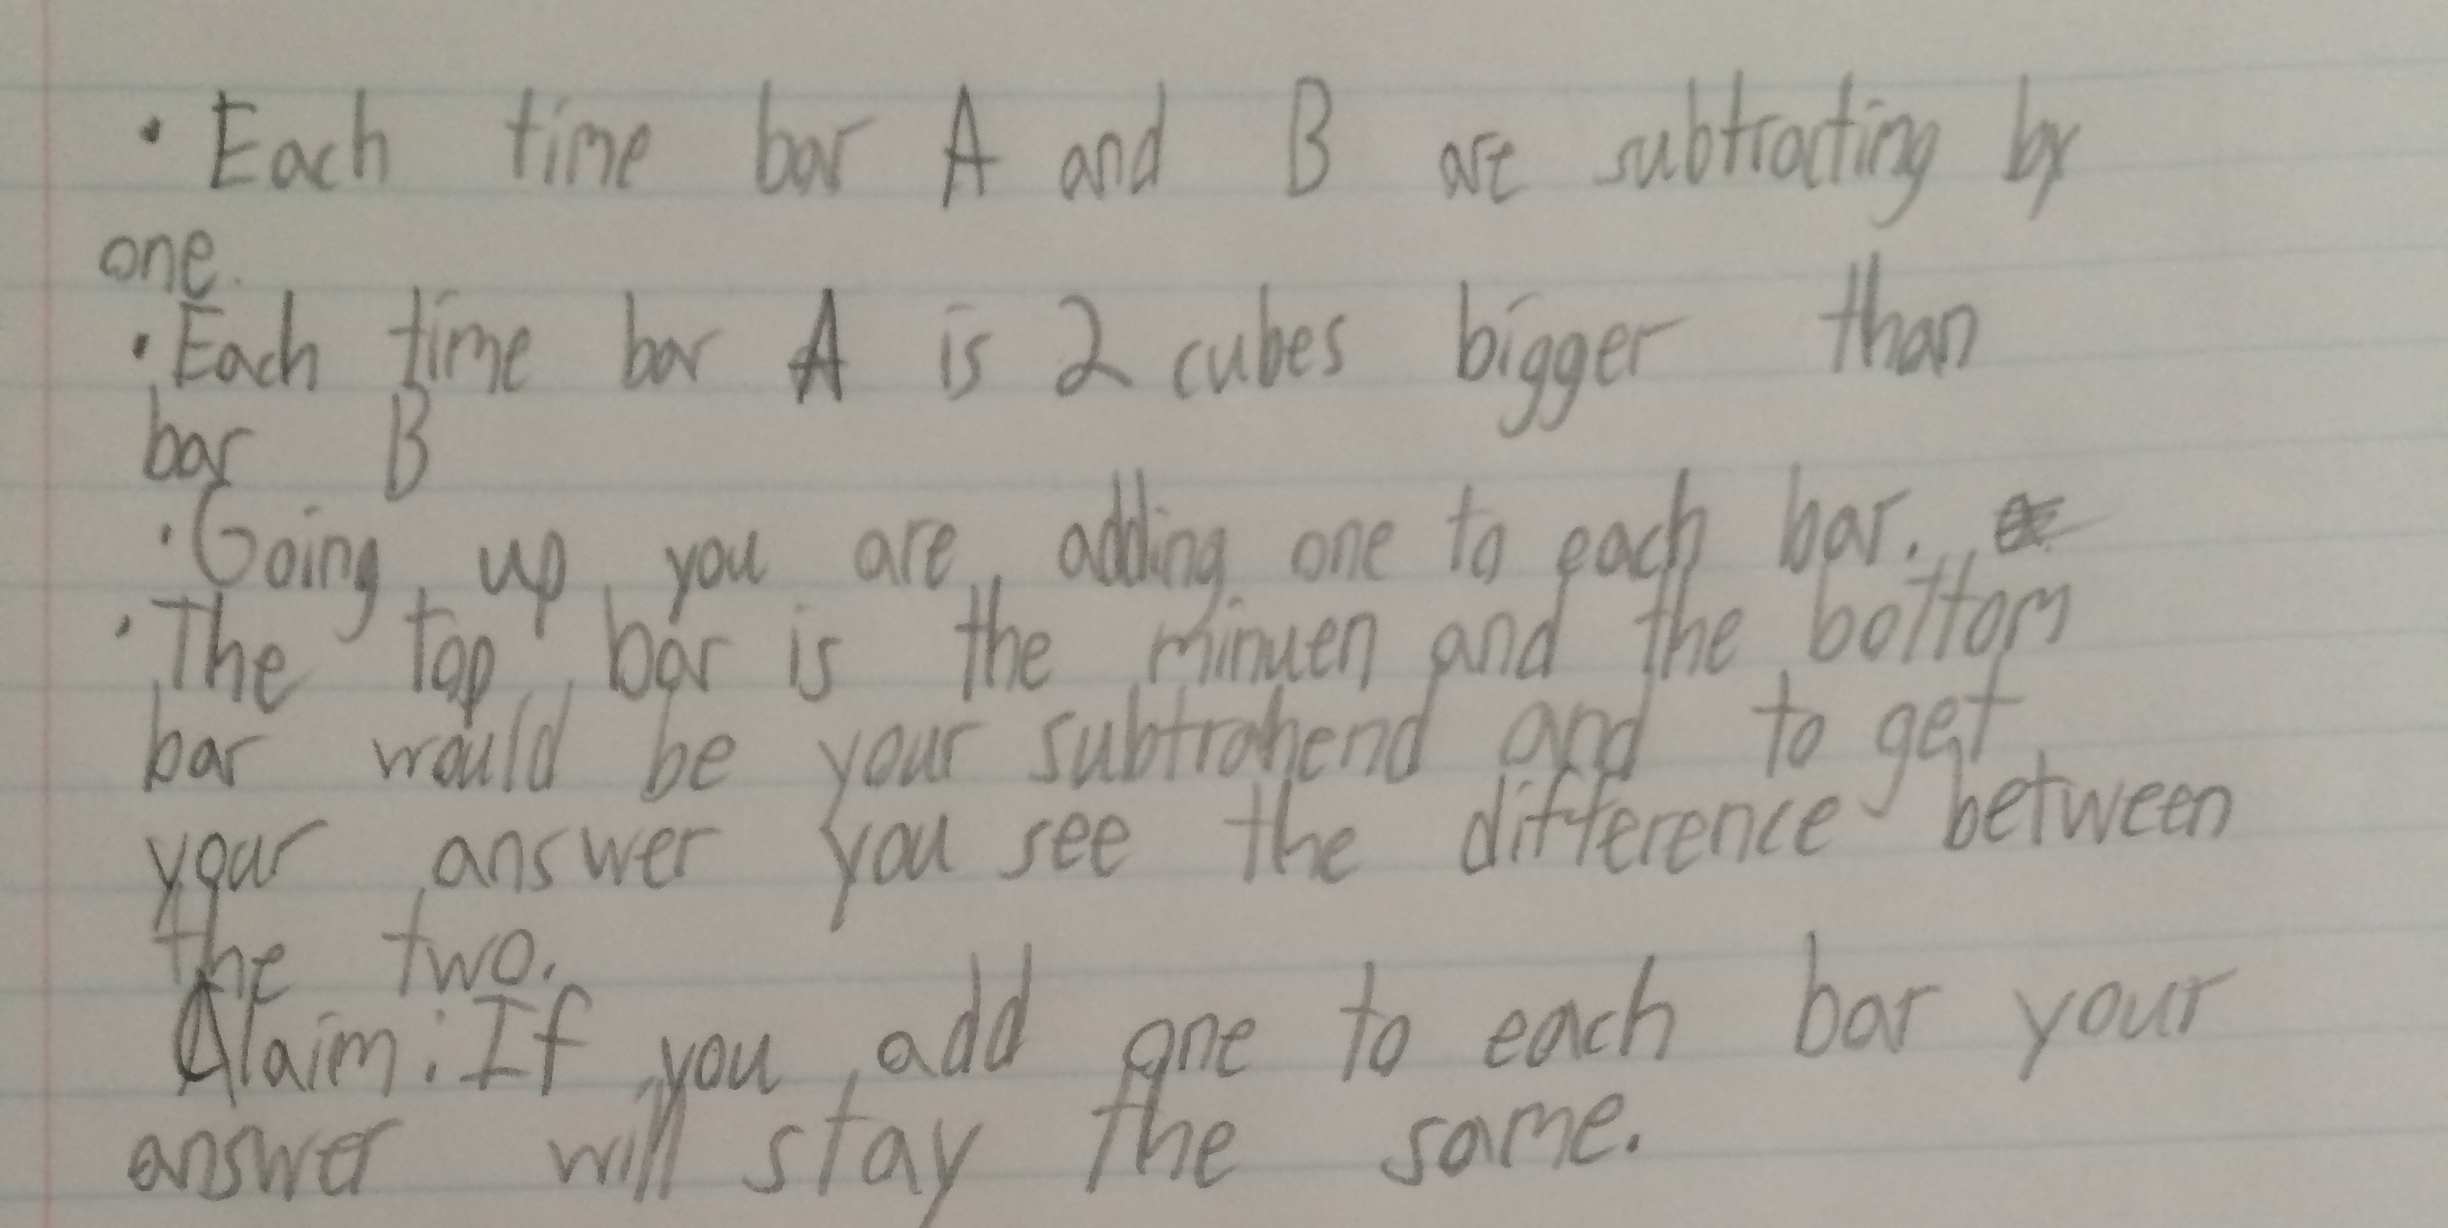 · Each time bar A and B are subtracting by
one.
· Each time bar A is 2 cubes bigger than
bar B
· Going up you are adding one to each bar.
· The top bar is the minuen and the bottom
bar would be your subtrahend and to get
your answer you see the difference between
the two.
Claim: If you add one to each bar your
answer will stay the same.